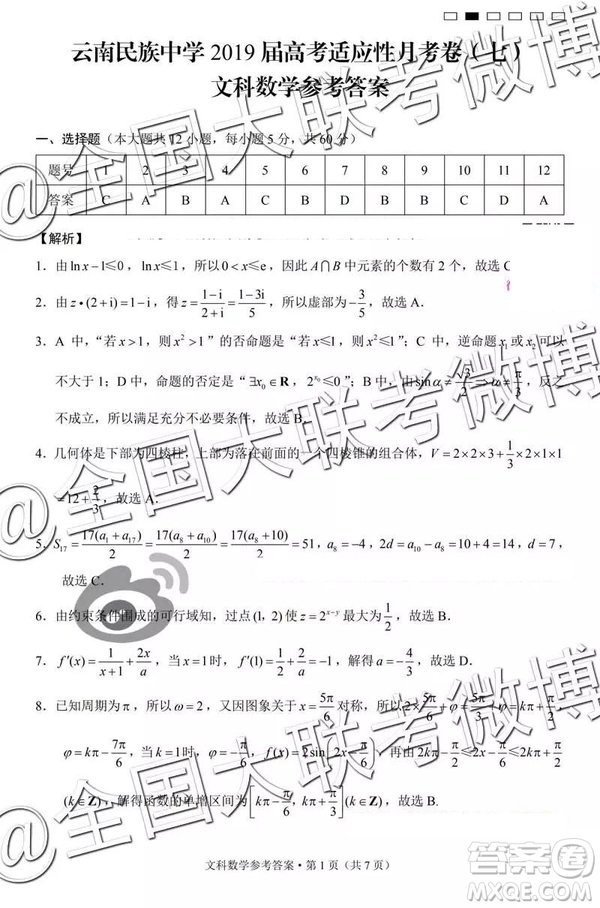 云南民族中学 2019 届高考适应性月考卷（七）
文科数学参考答案
一、选择题（本大题共 12 小题，每小题 5 分，共 60 分）
题号 1 2 3 4 5 6 7 8 9 10 11 12
答案 C A B A C B A B A
【解析】
1．由 ln x－1≤0，ln x≤1，所以 0＜x≤e，因此 A∩B 中元素的个数有 2 个，故选 C
2．由 z·(2+i)=1－i，得 z=(1－i)/(2+i)=(1－3i)/5，所以虚部为－3/5，故选 A．
3．A 中，“若 x＞1，则 x²＞1”的否命题是“若 x≤1，则 x²≤1”；C 中，逆命题 x₁ 或 x₂ 可以
不大于 1；D 中，命题的否定是“∃x₀∈R，2^x₀≤0”；B 中，由 sin α≠√3/2⇒α≠π/3，反之
不成立，所以满足充分不必要条件，故选 B．
4．几何体是下部为四棱柱，上部为落在前面的一个四棱锥的组合体，V=2×2×3+1/3×2×1×1
=12+2/3，故选 A．
5．S₁₇=17(a₁+a₁₇)/2=17(a₈+a₁₀)/2=17(a₈+10)/2=51，a₈=－4，2d=a₁₀－a₈=10+4=14，d=7，
故选 C．
6．由约束条件围成的可行域知，过点 (1, 2) 使 z=2^(x－y) 最大为 1/2，故选 B．
7．f′(x)=1/(x+1)+2x/a，当 x=1 时，f′(1)=1/2+2/a=－1，解得 a=－4/3，故选 A．
8．已知周期为 π，所以 ω=2，又因图象关于 x=5π/6 对称，所以 2×5π/6+φ=3π/2+φ=kπ+π/2，
φ=kπ－7π/6，φ=－π/6，f(x)=2sin[2x－π/6]，再由 2kπ－π/2≤2x－π/6≤2kπ+π/2
(k∈Z)，解得函数的单增区间为[kπ－π/6，kπ+π/3](k∈Z)，故选 B．
文科数学参考答案·第 1 页（共 7 页）
@全国大联考微博
@全国大联考微博
@全国大联考微博
答案卷
MXQE.COM